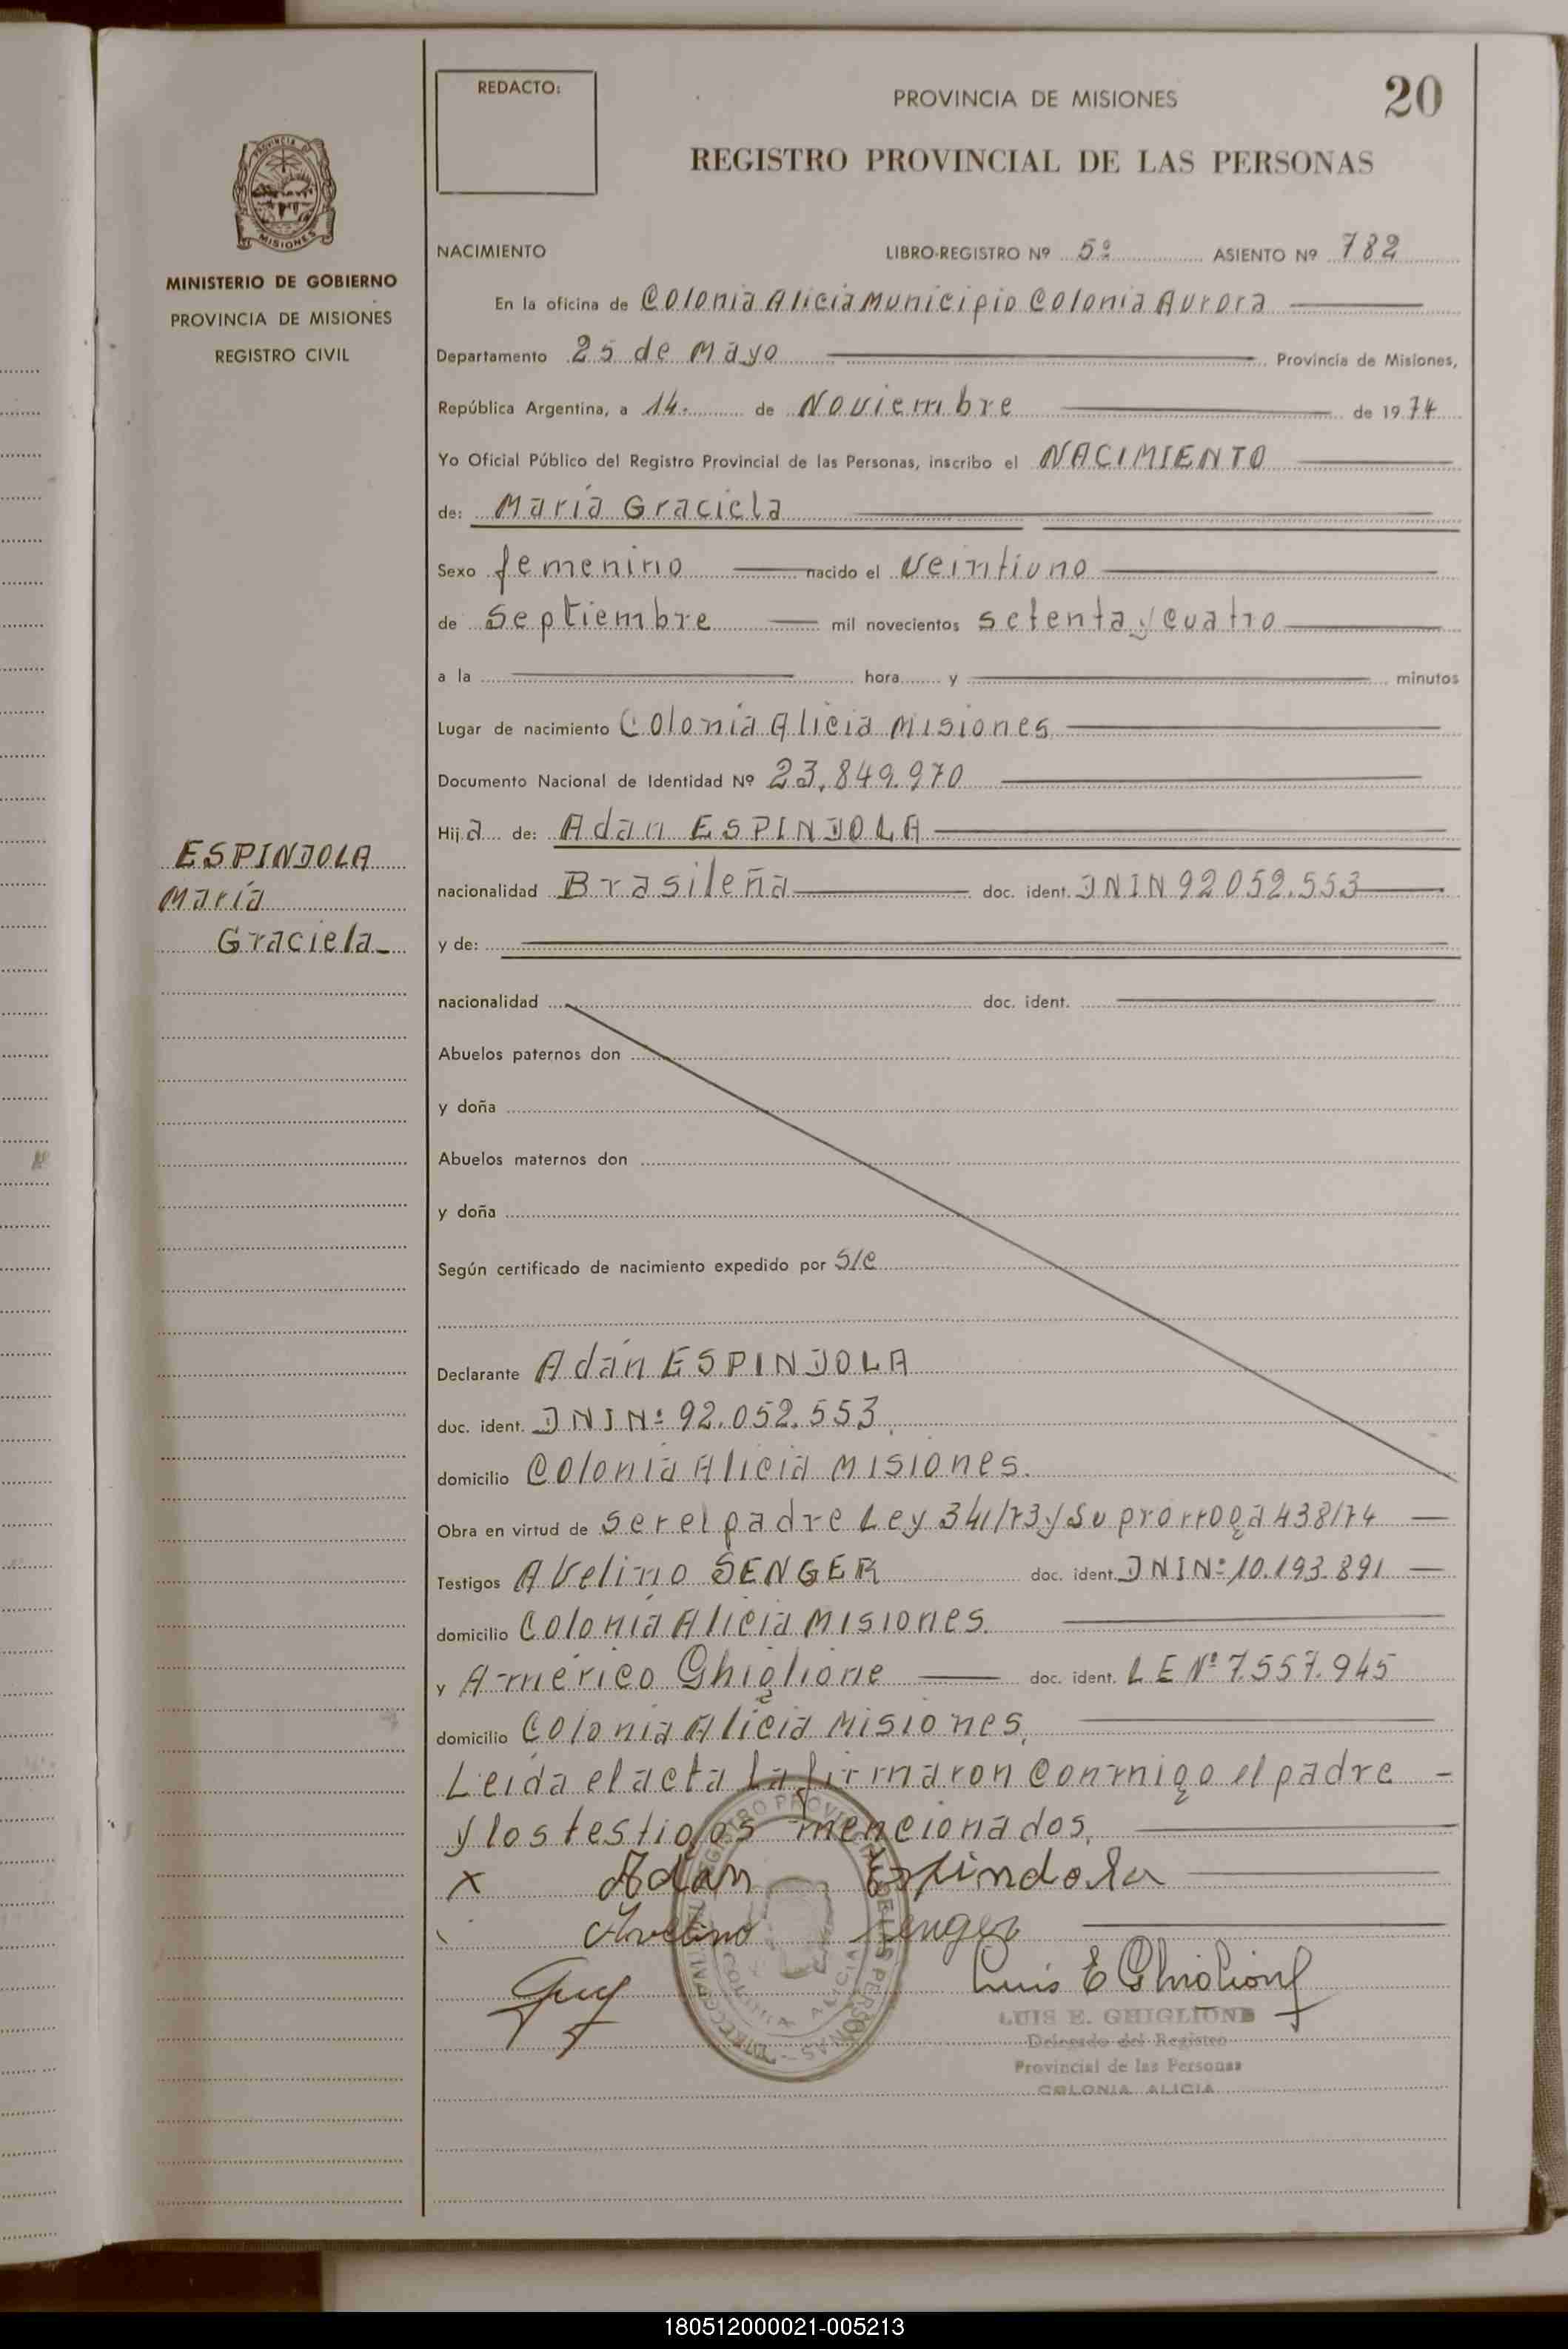 REDACTO:
PROVINCIA DE MISIONES
20
REGISTRO PROVINCIAL DE LAS PERSONAS
PROVINCIA DE
MISIONES
MINISTERIO DE GOBIERNO
PROVINCIA DE MISIONES
REGISTRO CIVIL
NACIMIENTO LIBRO-REGISTRO Nº 5º ASIENTO Nº 782
En la oficina de Colonia Alicia Municipio Colonia Aurora
Departamento 25 de Mayo Provincia de Misiones,
República Argentina, a 14. de Noviembre de 1974
Yo Oficial Público del Registro Provincial de las Personas, inscribo el NACIMIENTO
de: María Graciela
Sexo femenino nacido el veintiuno
de Septiembre mil novecientos setenta y cuatro
a la hora y minutos
Lugar de nacimiento Colonia Alicia Misiones
Documento Nacional de Identidad Nº 23,849.970
Hija de: Adan ESPINDOLA
ESPINDOLA
María
Graciela
nacionalidad Brasileña doc. ident. DNIN 92052.553
y de:
nacionalidad doc. ident.
Abuelos paternos don
y doña
Abuelos maternos don
y doña
Según certificado de nacimiento expedido por S/C
Declarante Adán ESPINDOLA
doc. ident. DNINº 92.052.553
domicilio Colonia Alicia Misiones.
Obra en virtud de ser el padre Ley 341/73 y su prorroga 438/74
Testigos Avelino SENGER doc. ident. DNINº 10.193.891
domicilio Colonia Alicia Misiones.
y Américo Ghiglione doc. ident. LE Nº 7.557.945
domicilio Colonia Alicia Misiones,
Leída el acta la firmaron conmigo el padre
y los testigos mencionados,
x Adan Espindola
Avelino Senger
Luis E Ghiglione
LUIS E. GHIGLIONE
Delegado del Registro
Provincial de las Personas
COLONIA ALICIA
COLONIA ALICIA
180512000021-005213